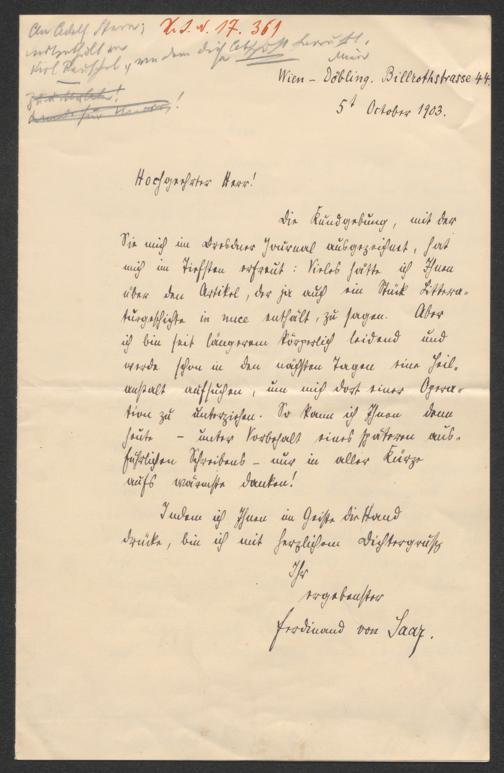 An Adolf Stern; H. I. N. 17. 361
Wien – Döbling. Billrothstrasse 44.
5t October 1903.
Hochgeehrter Herr!
Die Kundgebung, mit der
Sie mich im Dresdner Journal ausgezeichnet, hat
mich im Tiefsten erfreut: Vieles hätte ich Ihnen
über den Artikel, der ja auch ein Stück Littera-
turgeschichte in nuce enthält, zu sagen. Aber
ich bin seit längerem körperlich leidend und
werde schon in den nächsten Tagen eine Heil-
anstalt aufsuchen, um mich dort einer Opera-
tion zu unterziehen. So kann ich Ihnen denn
heute – unter Vorbehalt eines späteren aus-
führlichen Schreibens – nur in aller Kürze
aufs wärmste danken!
Indem ich Ihnen im Geiste die Hand
drücke, bin ich mit herzlichem Dichtergruß
Ihr
ergebenster
Ferdinand von Saar.